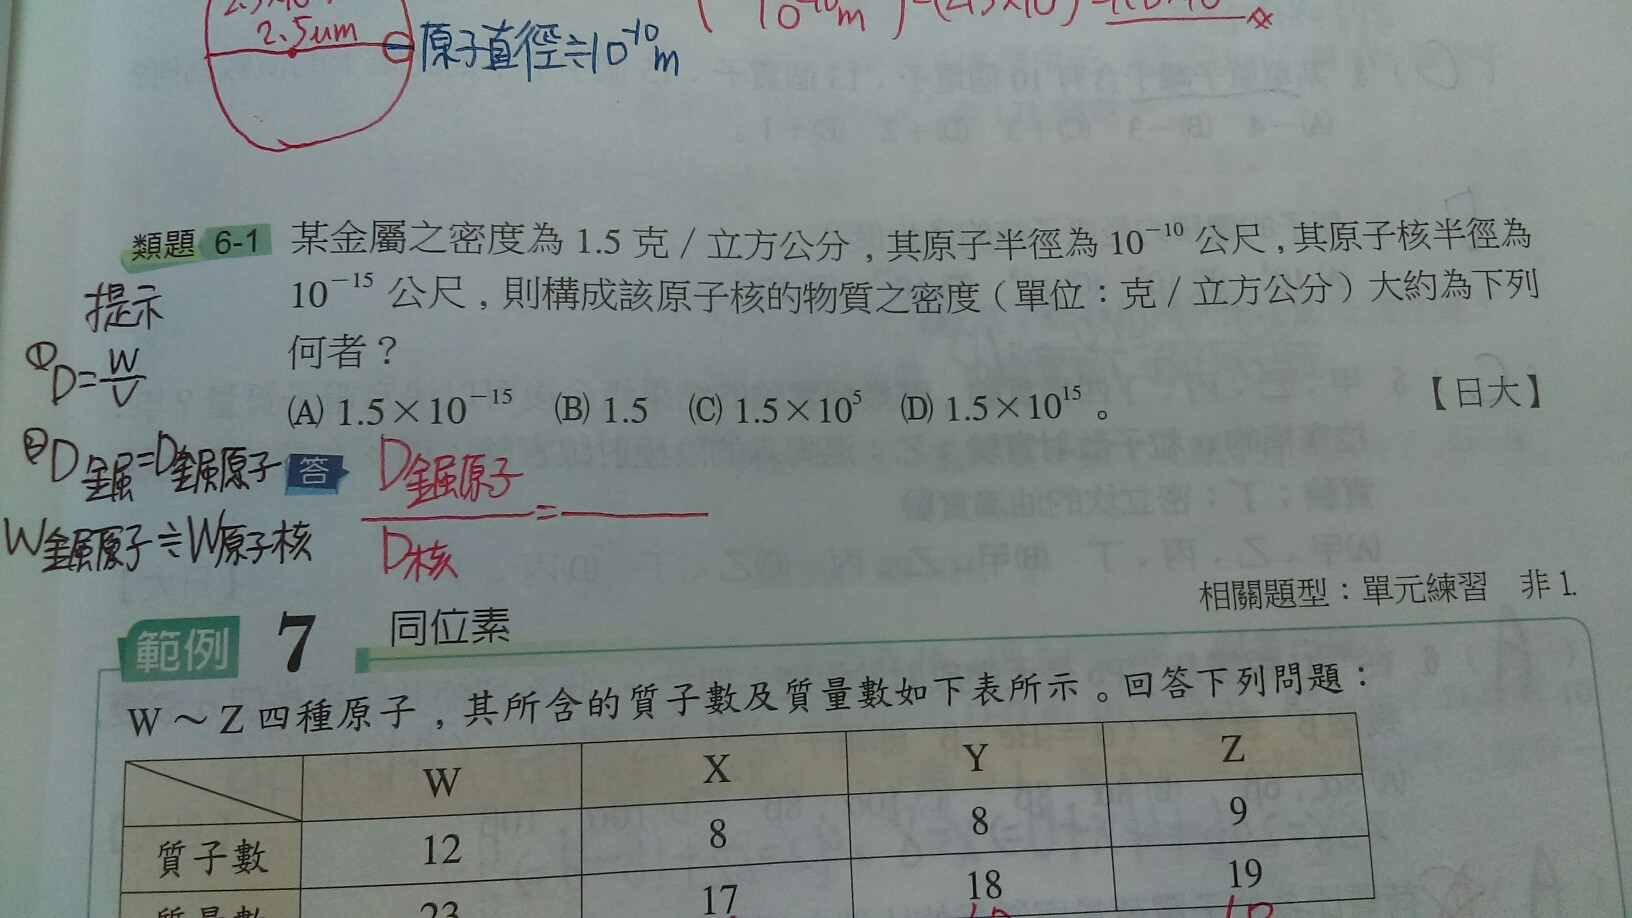 2.5um
原子直徑≒10⁻¹⁰m
10⁻¹⁰m
類題 6-1 某金屬之密度為 1.5 克/立方公分,其原子半徑為 10⁻¹⁰ 公尺,其原子核半徑為
10⁻¹⁵ 公尺,則構成該原子核的物質之密度(單位:克/立方公分)大約為下列
何者?
(A) 1.5×10⁻¹⁵ (B) 1.5 (C) 1.5×10⁵ (D) 1.5×10¹⁵。
【日大】
提示
① D=W/V
② D金屬=D金屬原子
W金屬原子≒W原子核
答
D金屬原子/D核=
相關題型:單元練習 非 1.
範例 7 同位素
W~Z 四種原子,其所含的質子數及質量數如下表所示。回答下列問題:
W X Y Z
質子數 12 8 8 9
質量數 23 17 18 19